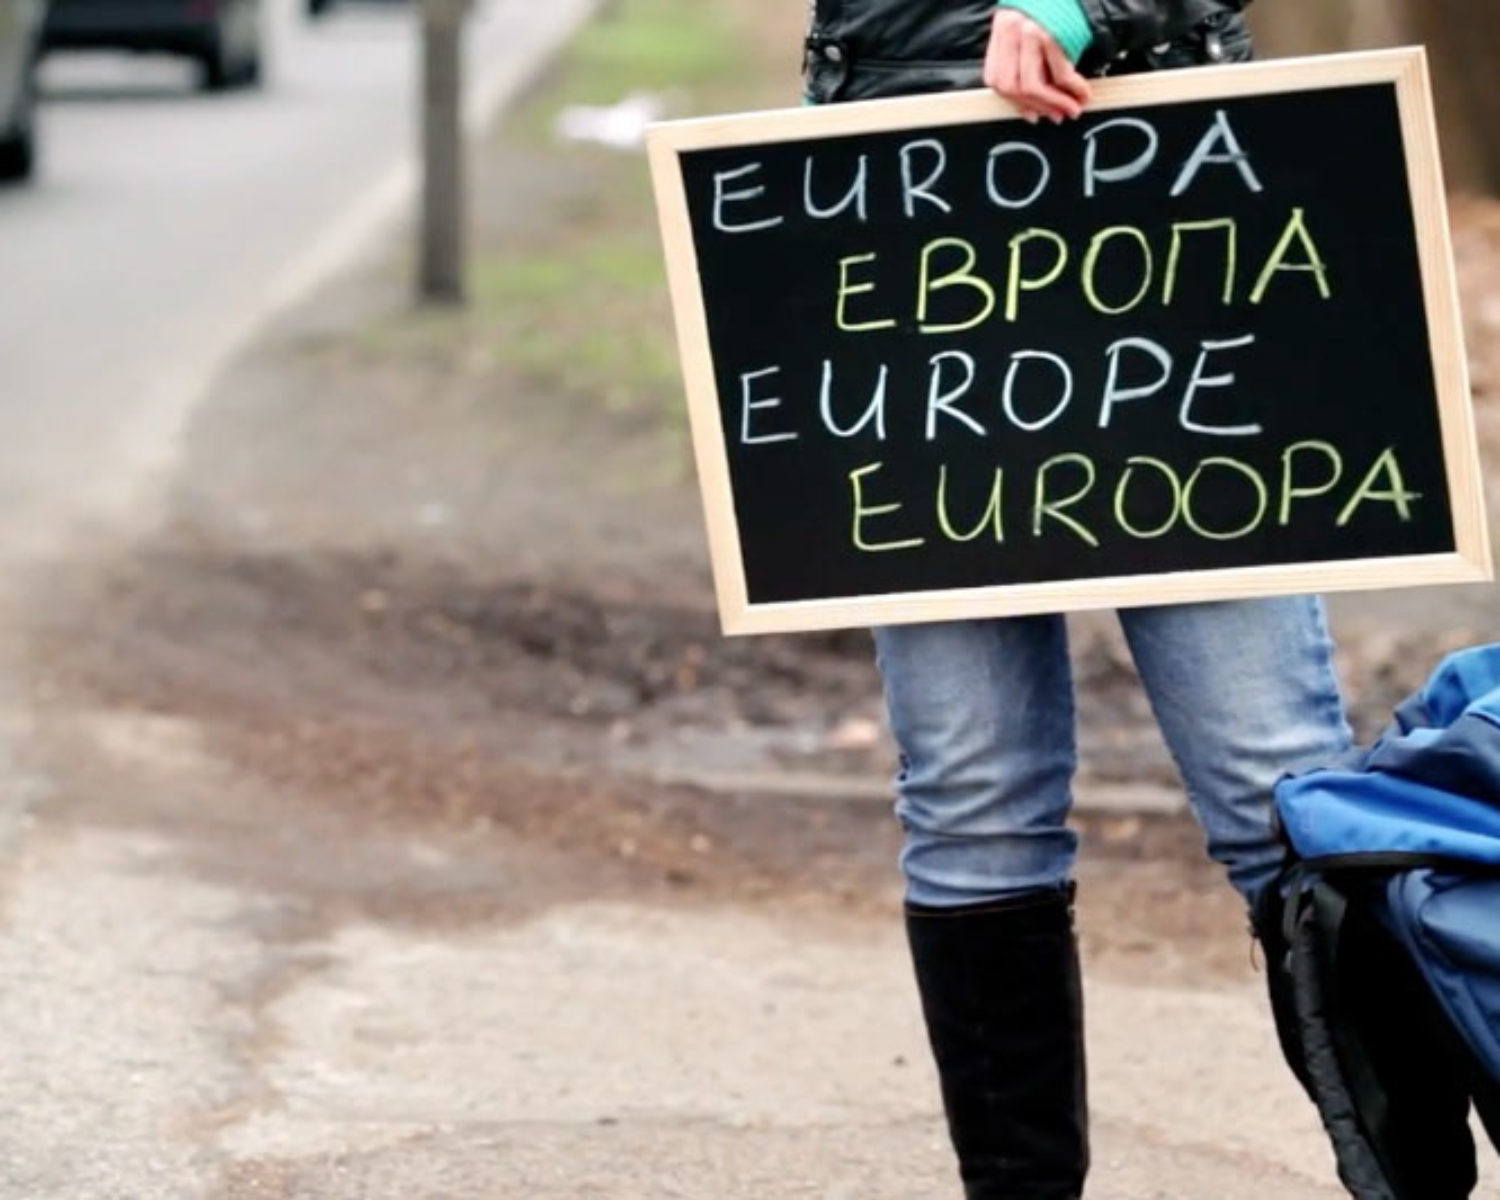 EUROPA
ЕВРОПА
EUROPE
EUROOPA